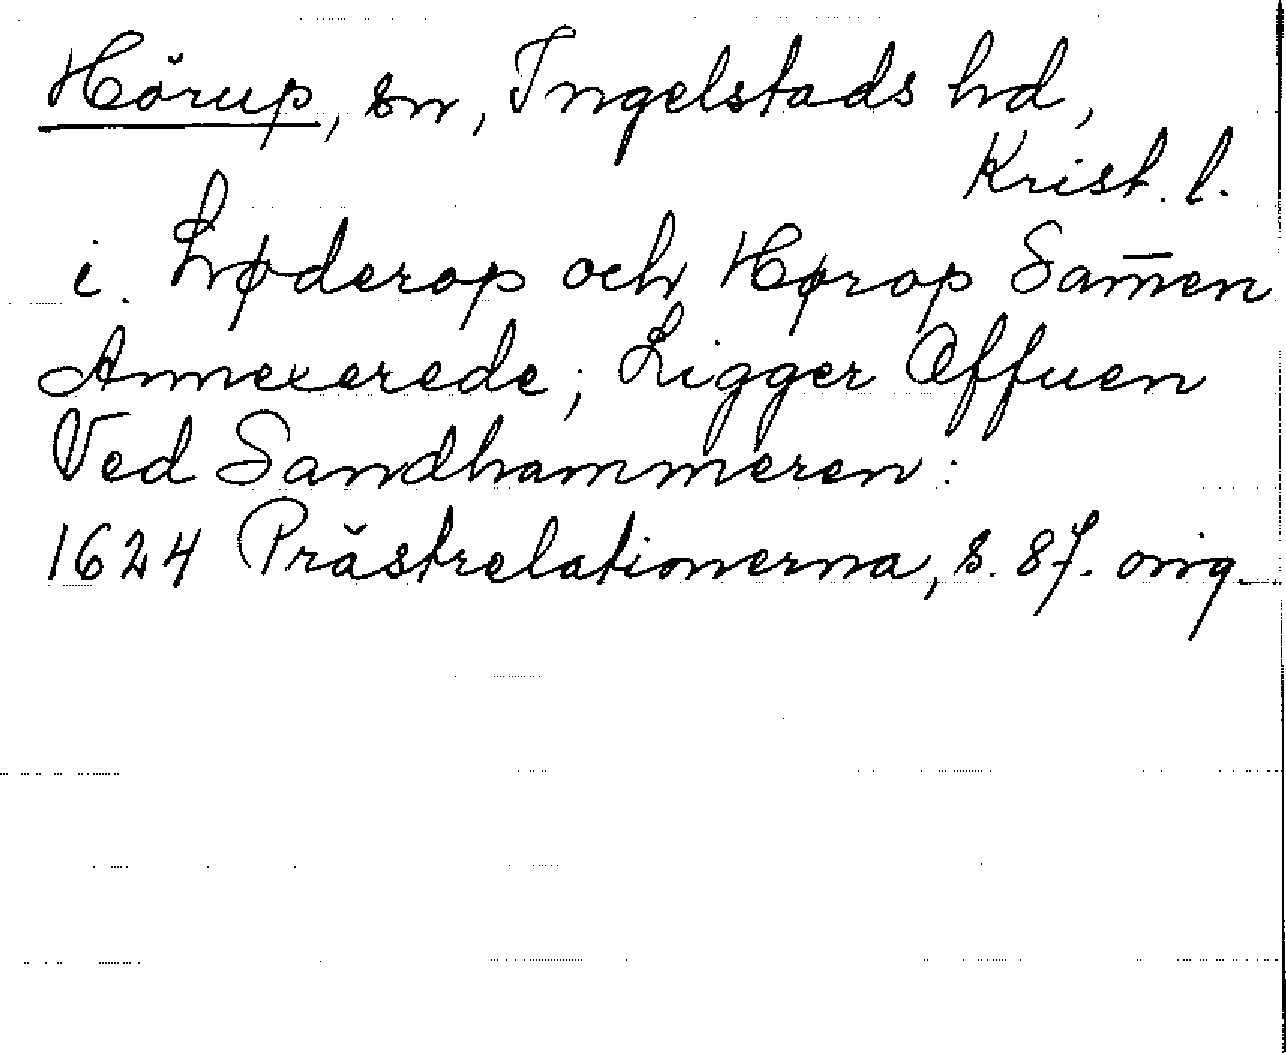 Hörup, sn, Ingelstads hd,
Krist. l.
i. Løderop och Hørop Sam̄en
Annexerede; Ligger Offuen
Ved Sandhammeren:
1624 Prästrelationerna, s. 87. orig.